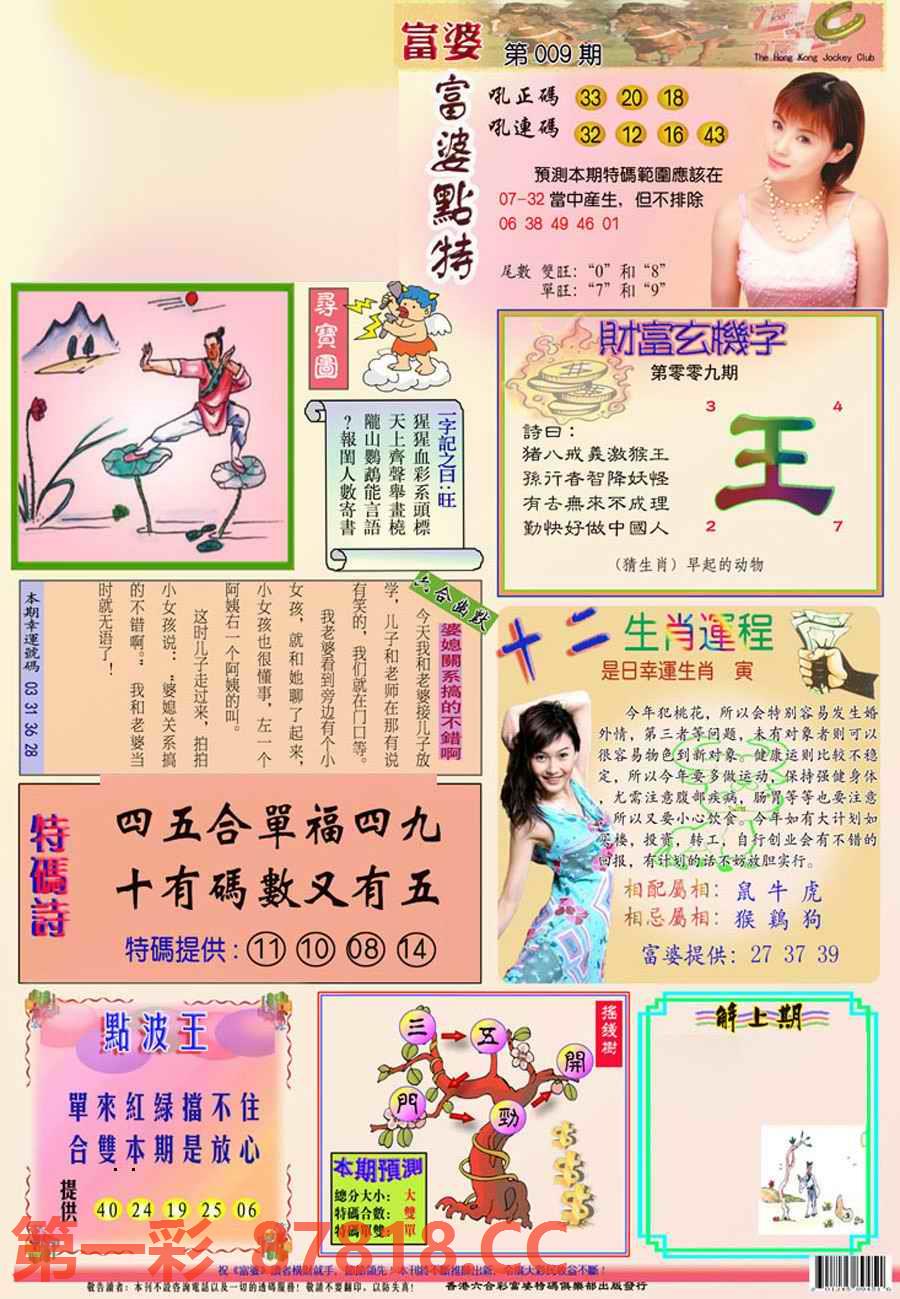 富婆 第009期
The Hong Kong Jockey Club
富婆點特
吼正碼 33 20 18
吼連碼 32 12 16 43
預測本期特碼範圍應該在
07-32當中産生，但不排除
06 38 49 46 01
尾數 雙旺：“0”和“8”
單旺：“7”和“9”
尋寶圖
一字記之曰：旺
猩猩血彩系頭標
天上齊聲舉畫橈
隴山鸚鵡能言語
？報閨人數寄書
財富玄機字
第零零九期
3 4
詩曰：
豬八戒義激猴王
孫行者智降妖怪
有去無來不成理
勤快好做中國人
王
2 7
（猜生肖）早起的动物
六合幽默
婆媳關系搞的不錯啊
今天我和老婆接儿子放
学，儿子和老师在那有说
有笑的，我们就在门口等。
我老婆看到旁边有个小
女孩，就和她聊了起来，
小女孩也很懂事，左一个
阿姨右一个阿姨的叫。
这时儿子走过来，拍拍
小女孩说：“婆媳关系搞
的不错啊。”我和老婆当
时就无语了！
本期幸運號碼 03 31 36 28
十二生肖運程
是日幸運生肖 寅
今年犯桃花，所以会特别容易发生婚
外情，第三者等问题，未有对象者则可以
很容易物色到新对象。健康运则比较不稳
定，所以今年要多做运动，保持强健身体
，尤需注意腹部疾病，肠胃等等也要注意
，所以又要小心饮食。今年如有大计划如
买楼，投资，转工，自行创业会有不错的
回报，有计划的话不妨放胆实行。
相配屬相：鼠 牛 虎
相忌屬相：猴 鷄 狗
富婆提供：27 37 39
特碼詩
四五合單福四九
十有碼數又有五
特碼提供：11 10 08 14
點波王
單來紅绿擋不住
合雙本期是放心
提供 40 24 19 25 06
搖錢樹
三 五 開
門 勁
本期預測
總分大小：大
特碼合數：雙
特碼單雙：單
解上期
第一彩 87818.CC
敬告讀者：本刊不設咨詢電話以及一切的透碼服務！敬請不要翻印，以防失真！
香港六合彩富婆特碼俱樂部出版發行